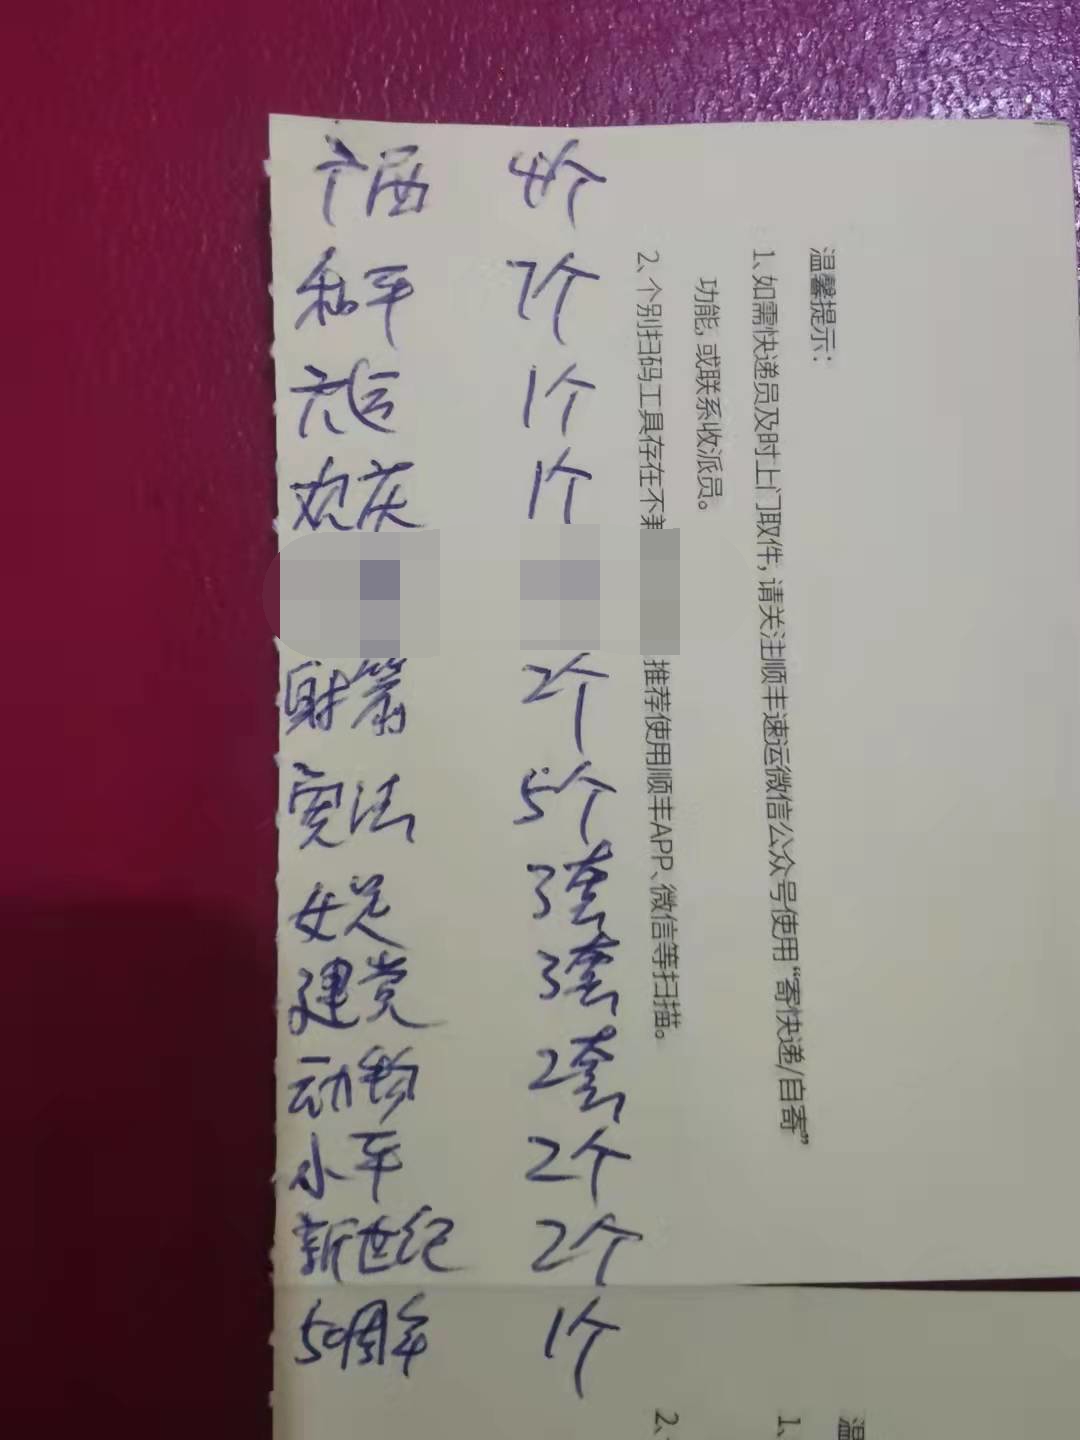 宁西 4个
和平 7个
六运 1个
欢庆 1个
射箭 2个
宪法 5个
女足 3套
建党 3套
动物 2套
小平 2个
新世纪 2个
50周年 1个
温馨提示：
1、如需快递员及时上门取件，请关注顺丰速运微信公众号使用“寄快递/自寄”
功能，或联系收派员。
2、个别扫码工具存在不兼
推荐使用顺丰APP、微信等扫描。
温
1、
2、